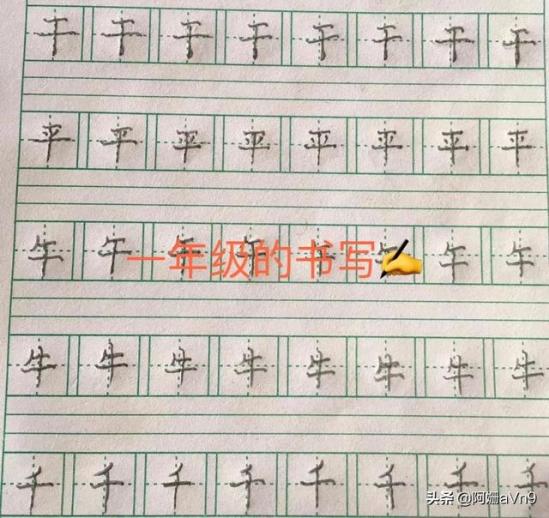 干 干 干 干 干 干 干 干
平 平 平 平 平 平 平 平
午 午 午 午 午 午 午 午
一年级的书写
牛 牛 牛 牛 牛 牛 牛 牛
千 千 千 千 千 千 千 千
头条 @阿姗aVn9